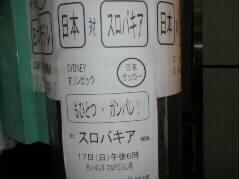 日本 対 スロバキア
SYDNEY
オリンピック
日本
サッカー
もひとつ・ガンバレ!
対 スロバキア
17日(日)午後6時